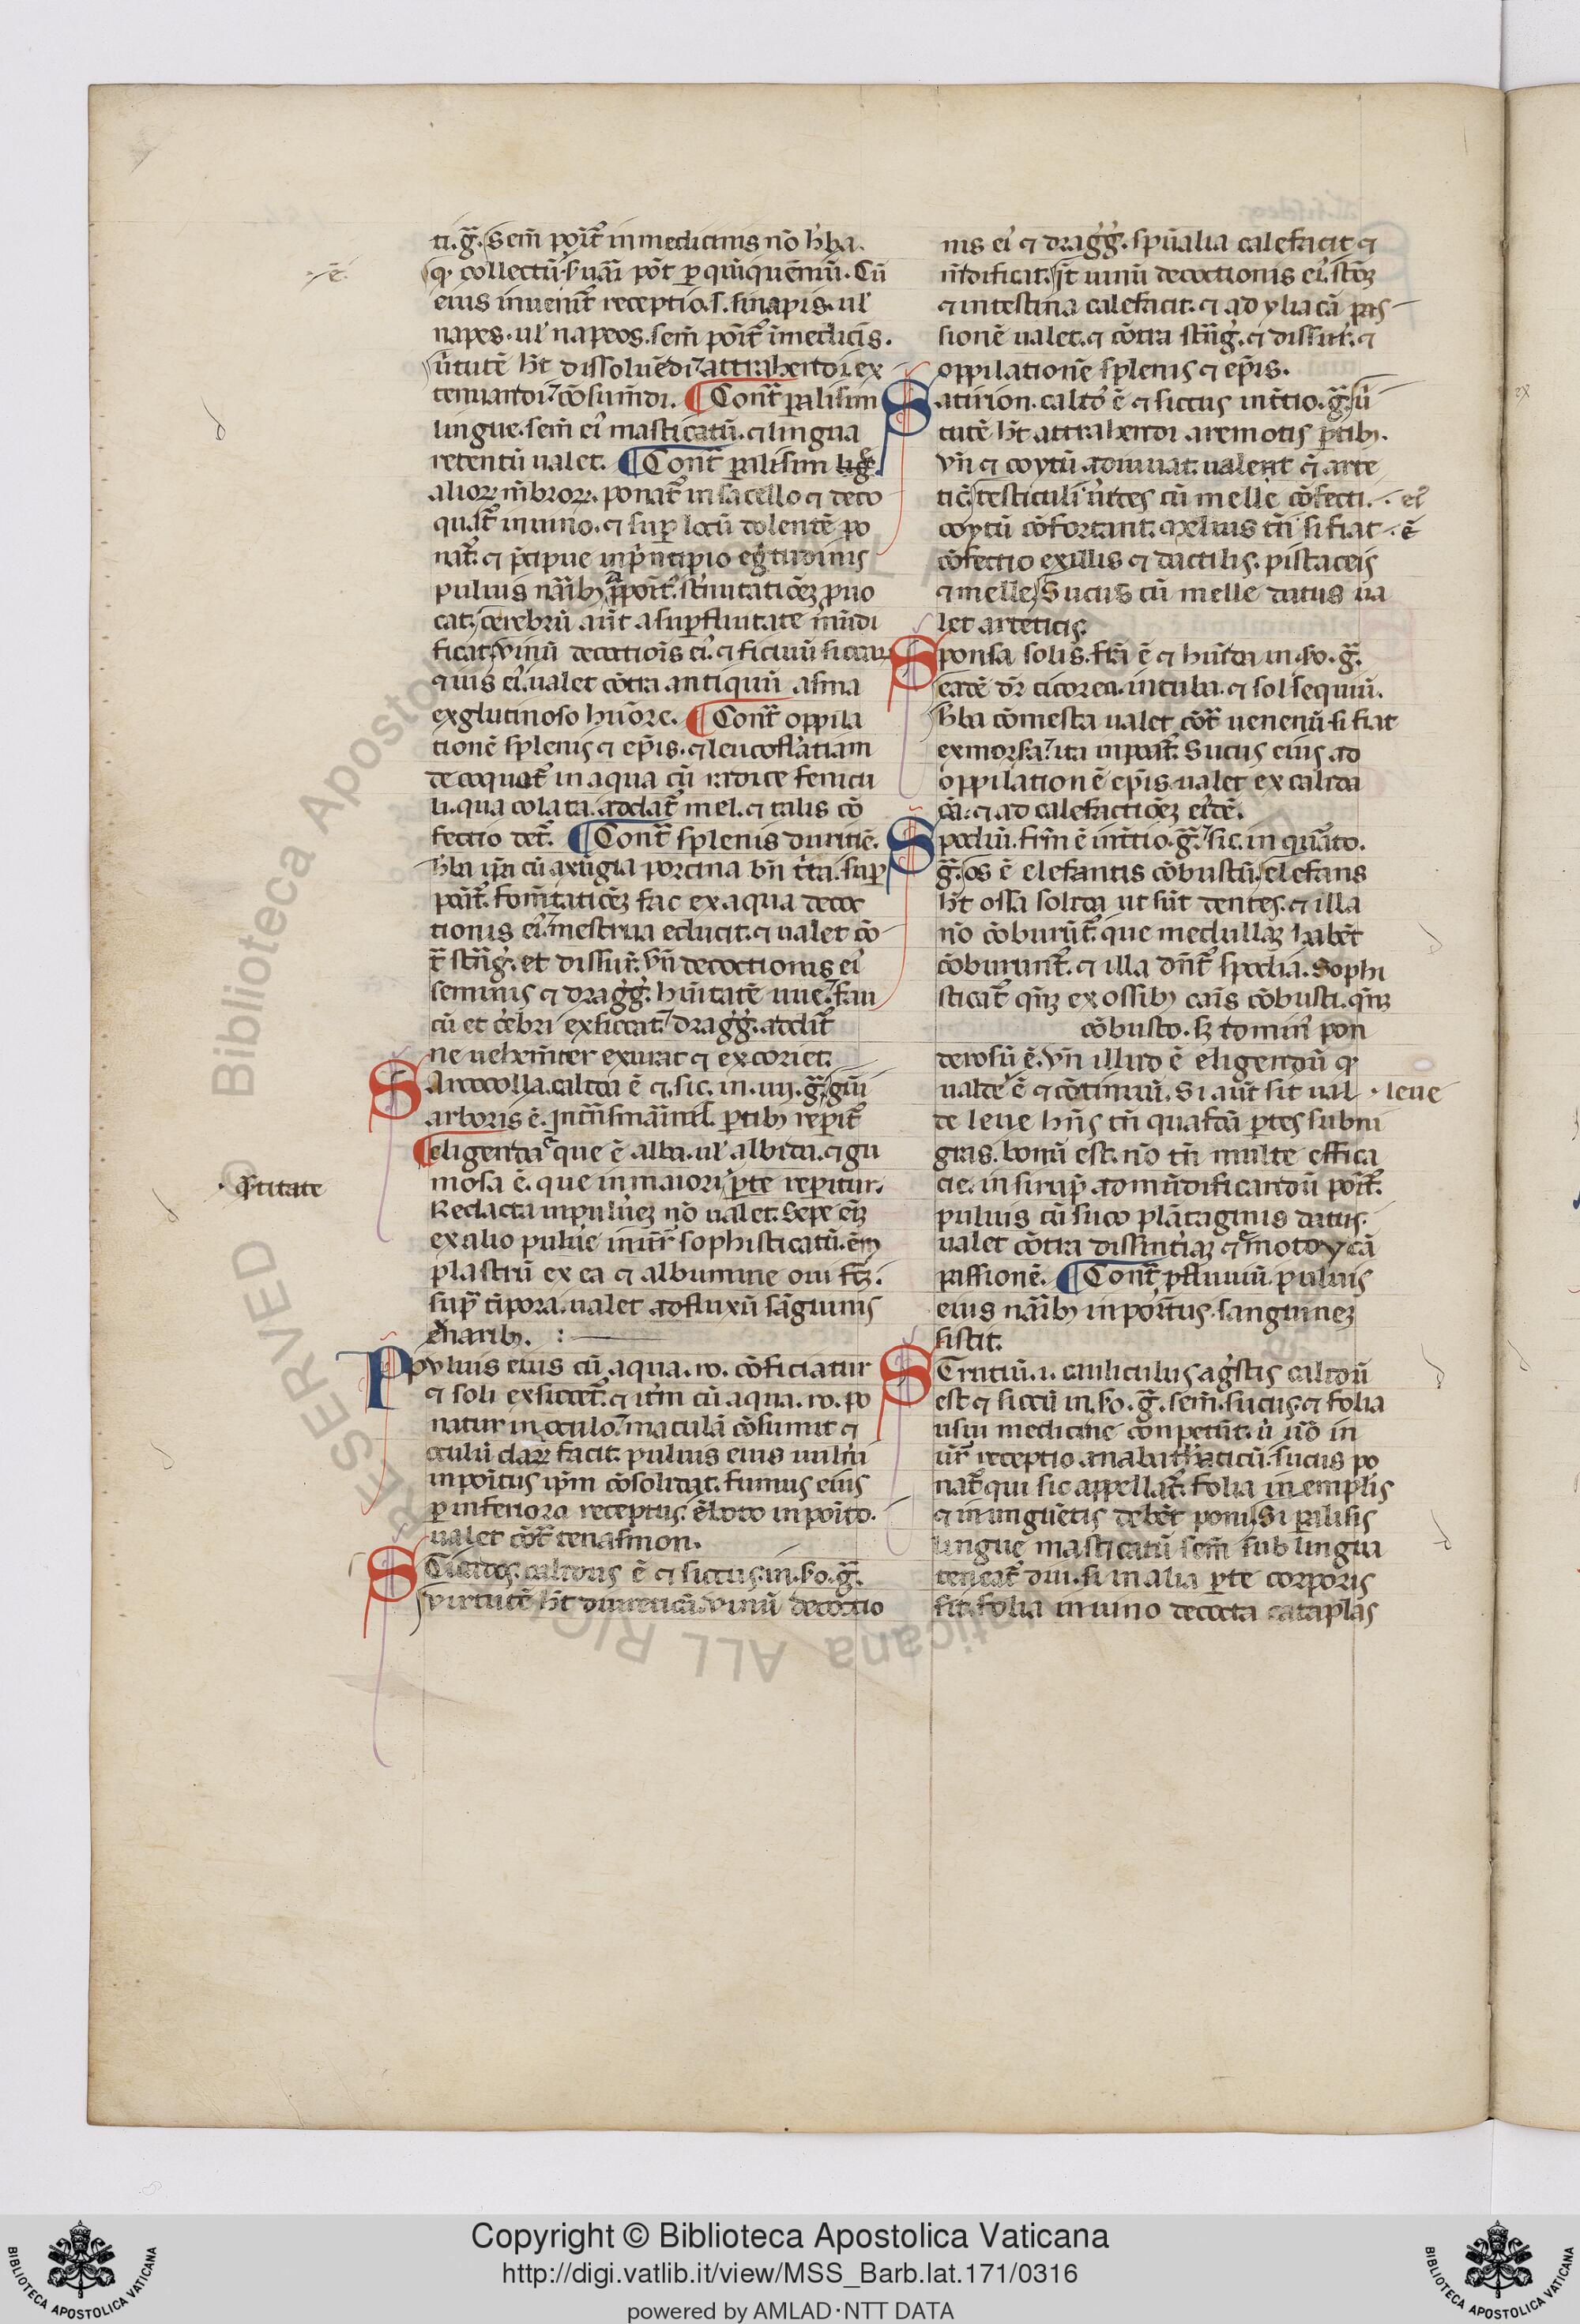 ti. g̃. Sem̃ poıt̃ in medicinis nō h̃ba.
q̨ collectū ẜuari põt ꝑ quīquēniū. Cū
eius inuenit̃ receptio. s. sinapis. ul̕
napes. ul̕ napeos. sem̃ poıt̃ ī medicīs.
ũtutē h̃t dissoluēdi ⁊ attrahendi. ex
tenuandi ⁊ cōsumēdi. ¶ Cont̃ ꝑalisim
lingue. sem̃ ei̕ masticatū. ⁊ lingua
retentū ualet. ¶ Cont̃ ꝑalisim
alioꝝ m̄bꝛoꝝ. ponat̃ in sacello ⁊ deco
quat̃ in uino. ⁊ suꝑ locū dolentē po
nat̃. ⁊ p̃cipue in pͥncipio egͥtudinis
puluis narib᷒ apposit̃. st̃nutatiōeꝫ ꝓuo
cat. cerebꝛū aūt a suꝑfluitate mūdi
ficat. vinū decoctiōis ei̕. ⁊ ficuū siccaꝝ
⁊ uis ei̕. ualet cōtra antiquū asma
ex glutinoso hūoꝛe. ¶ Cont̃ oppila
tionē splenis ⁊ ep̄is. ⁊ leucofl̕atiam
decoquat̃ in aqua cū radice fenicu
li. qua colata. addat̃ mel. ⁊ talis cō
fectio det̃. ¶ Cont̃ splenis duritiē.
h̃ba ip̄a cū axūgia poꝛcina bñ t̃ta. suꝑ
poıt̃. fom̄tatiōeꝫ fac ex aqua decoc
tionis ei̕. ⁊ mestrua educit. ⁊ ualet cō
t̃ st̃ng̕. et dissur̃. vñ decoctionis ei̕
seminis ⁊ dragg̕. hūıtatē uue. ⁊ fau
cū et c̃ebꝛi exsiccat. ⁊ dragg̕. addit̃
ne uehem̄ter exurat ⁊ excoꝛiet.
Sarcocolla. calida ē ⁊ sic. in .iıȷ. g̃. gūi
arboꝛis ē.
¶ eligenda ē que ē alba. ul̕ albida. ⁊ gu
mosa ē. que in maioꝛi ꝑte reperitur.
· q̃titate
Redacta in puluēꝫ nō ualet. Sepe ei̕
ex alio puluē īuēr̃ sophisticatū. em
plastrū ex ea ⁊ albumine oui fc̃ꝫ.
supᵃ tīpoꝛa. ualet ad fluxū sāguinis
e narib᷒. :
Pvluis eius cū aqua. ro. cōficiatur
⁊ soli exsiccet̃. ⁊ it̃m cū aqua. ro. po
natur in oculo. ⁊ maculā cōsumit ⁊
oculū claꝝ facit. puluis eius uuln̄i
inpoıtus ip̄m cōsolidat. fumus eius
ꝑ inferioꝛa receptus. ēboto inpoıto.
ualet cōt̃ tenasmon.
Sticados. calidus ē ⁊ siccus. in. ẜo. g̃.
virtutē h̃t diureticā. vinū decoctio
nis ei̕ ⁊ dragg̕. spūalia calefacit ⁊
m̄dificat. It̃ uinū decoctionis ei̕. stōꝫ
⁊ intestina calefacit. ⁊ ad yliacā pas
sionē ualet. ⁊ cōtra st̃ng̕. ⁊ dissur̃. ⁊
oppilationē splenis ⁊ ep̄is.
Satirion. calid̕ ē ⁊ siccus in t̃tio. g̃. ũ
tutē h̃t attrahendi a remotis ꝑtib᷒.
vñ ⁊ coytū adiuuat. ualent ⁊ arte
tic̃. testiculi uirides cū melle cōfecti. · ei̕
coytū cōfoꝛtant. meluis tñ si fiat · ē
cōfectio ex illis ⁊ dactilis. pistaceis
⁊ melle. Sucus cū melle datus ua
let arteticis.
Sponsa solis. fra ē ⁊ hūida in. ẜo. g̃.
eadē dr̃ cicoꝛea. intuba. ⁊ solsequiū.
h̃ba comesta ualet cōt̃ uenenū. si fiat
ex moꝛsa. ⁊ ita inpoat̃. Sucus eius ad
oppilationē ep̄is. ualet ex calida
cã. ⁊ ad calefactiōeꝫ ei̕dē.
Spodiū. frm̄ ē in t̃tio. g̃. ⁊ sic. in quarto.
g̃. os ē elefantis cōbustū. elefans
h̃t ossa solida ut sūt dentes. ⁊ illa
nō cōburūt̃. que medullaꝫ habēt
cōburunt̃. ⁊ illa dn̄t̃ spodia. Sophi
sticat̃ q̃nꝫ ex ossib᷒ canis cōbusti. q̃nꝫ
cōbusto. ẜꝫ
derosū ē. vñ illud ē eligendū q̨
ualde ē ⁊ cōtinuū. Si aūt sit ual · leue
de leue hñs tñ quasdā ꝑtes subni
gras. bonū est. nō tñ multe effica
cie. in sirup̄ ad mūdificandū poıt̃.
puluis cū suco plātaginis datus.
ualet cōtra dissint̃iaꝫ ⁊ emotoycā
passionē. ¶ Cont̃ ꝑfluuiū. puluis
eius narib᷒ inpoıtus. sanguineꝫ
sistit.
STrutiū. i. cauliculus agͥstis calidū
est ⁊ siccū in. ẜo. g̃. sem̃. sucus. ⁊ folia
usui medicine conpetūt. ũ ũo in
ur̃ receptio anabutaticū. sucus po
nat̃ qui sic appellat̃. folia in emplīs
⁊ in unguētis debēt poni. Si ꝑalisis
lingue masticatū sem̃ sub lingua
teneat̃ diu. si in alia ꝑte coꝛpoꝛis
sit. folia in uino decocta cataplas
Copyright © Biblioteca Apostolica Vaticana
http://digi.vatlib.it/view/MSS_Barb.lat.171/0316
powered by AMLAD·NTT DATA